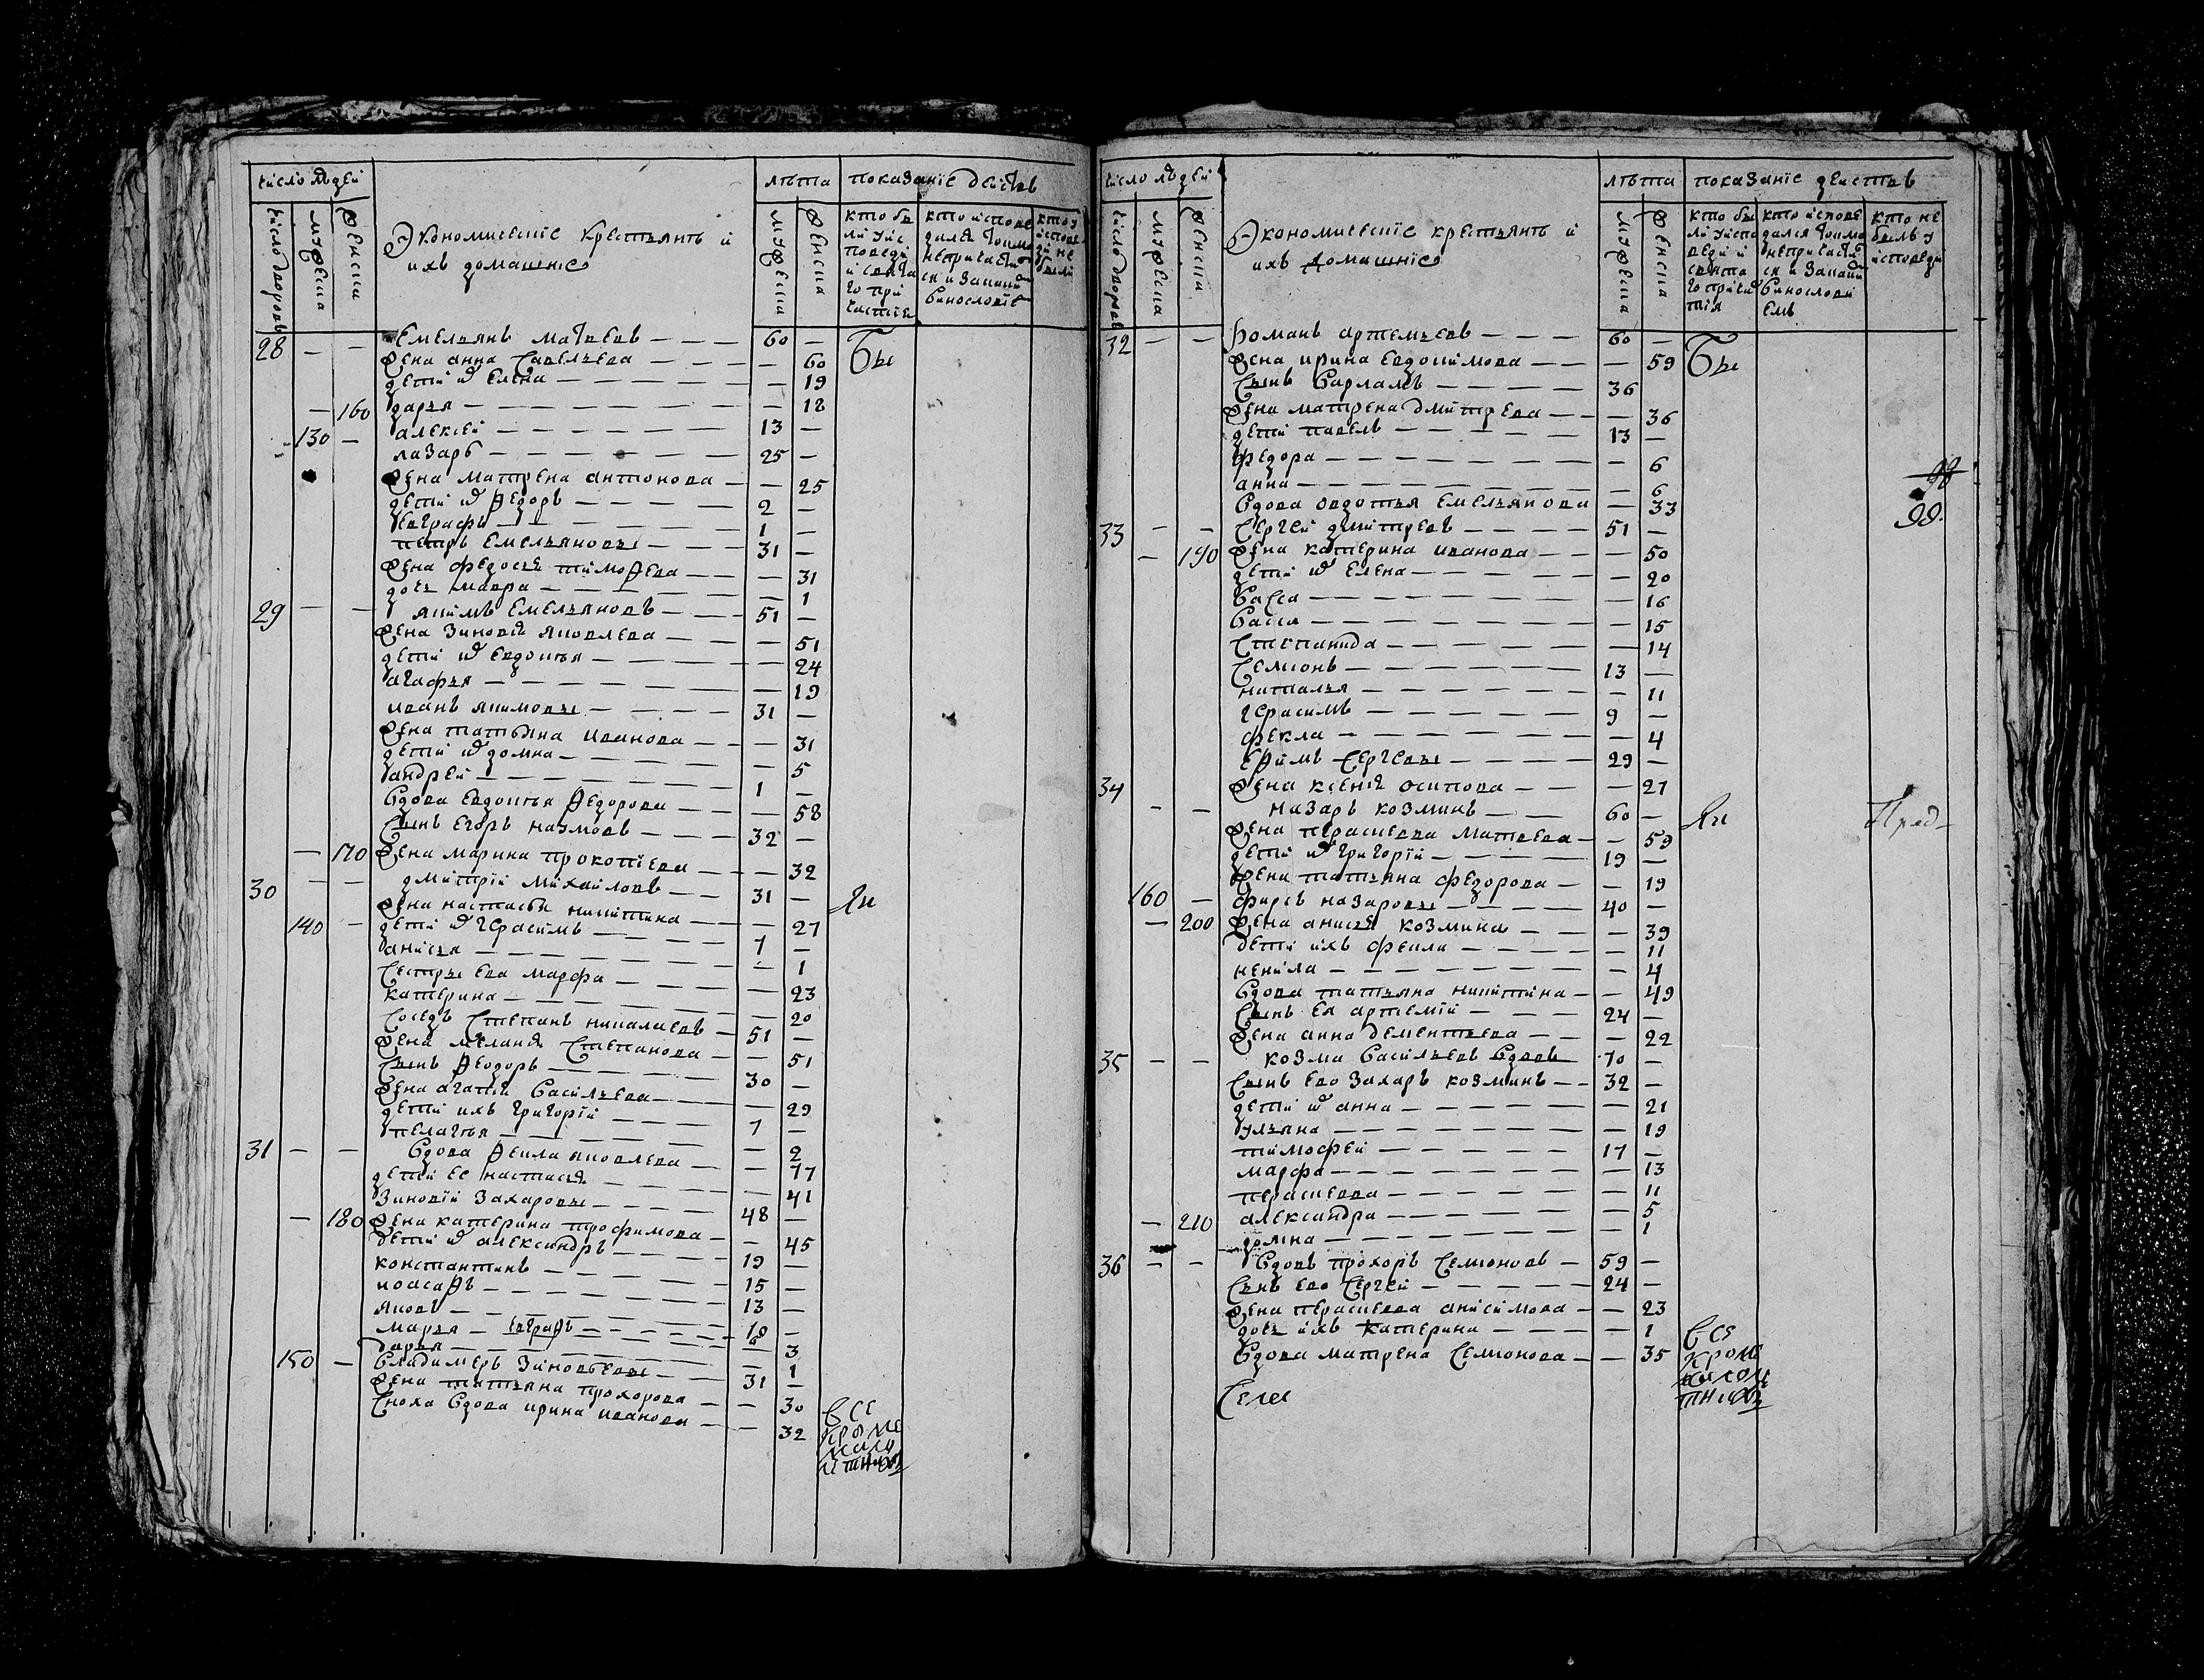 число людей
лѣта
показанїе действъ
число дворовъ
мужеска
женска
Экономические крестьянѣ и
ихъ домашнїе
мужеска
женска
кто бы
ли у ис
поведи
и свята
го при
частїя
кто испове
дался токмо
не причасти
ся и за каким
винословїем
кто у
испове
ди не
были
28 — — Емельянъ матвеевъ — 60 — Бы
жена анна Савельева — 60
дети их Елена — 19
— 160 дарья — 12
130 — алексей — 13 —
лазарь — 25 —
жена матрена антонова — 25
дети их Федоръ — 2 —
Евграфъ — 1 —
петръ Емельяновъ — 31 —
жена федосья тимофева — 31
дочь мавра — 1
29 — — якимъ Емельяновъ — 51 —
жена Зиновия яковлева — 51
дети их Евдокья — 24
агафья — 19
иванъ якимовъ — 31 —
жена татьяна Иванова — 31
дети их домна — 5
андрей — 1 —
Вдова Евдокья Федорова — 58
Сынъ Егоръ наумовъ — 32 —
— 170 жена марина прокопїева — 32
30 — — дмитрїй михайловъ — 31 — ли
жена настасья никитина — 27
140 — дети их герасимъ — 7 —
анисья — 1
Сестры Ево марфа — 23
катерина — 20
Соседъ Степанъ николаевъ — 51 —
жена меланя Степанова — 51
Сынъ Феодоръ — 30 —
жена агапия Васильева — 29
дети ихъ григорїй — 7 —
пелагья — 2
31 — — Вдова Фекла яковлева — 77
дети ее настасья — 41
Зиновїй Захаровъ — 48 —
— 180 жена катерина трофимова — 45
дети их александръ — 19 —
константинъ — 15 —
иоасафъ — 13 —
яковъ — 10 —
марья — Евграфъ — 6 3
дарья — 1
150 — Владимеръ Зиновьевъ — 31 —
жена татьяна прохорова — 30
Сноха Вдова ирина иванова — 32
все
кроме
мало
летнихъ
число людей
лѣта
показанїе действъ
число дворовъ
мужеска
женска
Экономические крестьянѣ и
ихъ домашнїе
мужеска
женска
кто бы
ли у испо
веди и
свята
го причас
тїя
кто испове
дался токмо
не причасти
ся и за каким
винослови
емъ
кто не
былъ у
исповеди
32 — — романъ артемьевъ — 60 — Бы
жена ирина Евдокимова — 59
Сынъ Варламъ — 36
жена матрена дмитрева — 36
дети павелъ — 13 —
федора — 6
анна — 6
98
99.
Вдова овдотья Емельянова — 33
33 — — Сергей дмитревъ — 51 —
— 190 жена катерина иванова — 50
дети их Елена — 20
Васса — 16
Васса — 15
Степанида — 14
Семионъ — 13 —
наталья — 11
герасимъ — 9 —
фекла — 4
Ефимъ Сергеевъ — 29 —
жена ксения осипова — 27
34 — — назаръ козминъ — 60 — ли
жена пераскева матвева — 59
дети их григорїй — 19 —
жена татьяна федорова — 19
160 — фирсъ назаровъ — 40 —
— 200 жена анисья козмина — 39
дети ихъ фекла — 11
ненила — 4
Вдова татьяна никитина — 49
Сынъ Ея артемїй — 24 —
жена анна дементьева — 22
35 — — козма Васильевъ Вдовъ 70 —
Сынъ Ево Захаръ козминъ — 32 —
дети их анна — 21
ульяна — 19
тимофей — 17 —
марфа — 13
пераскева — 11
— 210 александра — 5
домна — 1
36 — — Вдовъ прохоръ Семионовъ — 59 —
Сынъ Ево Сергей — 24 —
жена пераскева анисимова — 23
дочь ихъ катерина — 1
Вдова матрена Семионова — 35
все
кроме
малол
тнихъ
Села